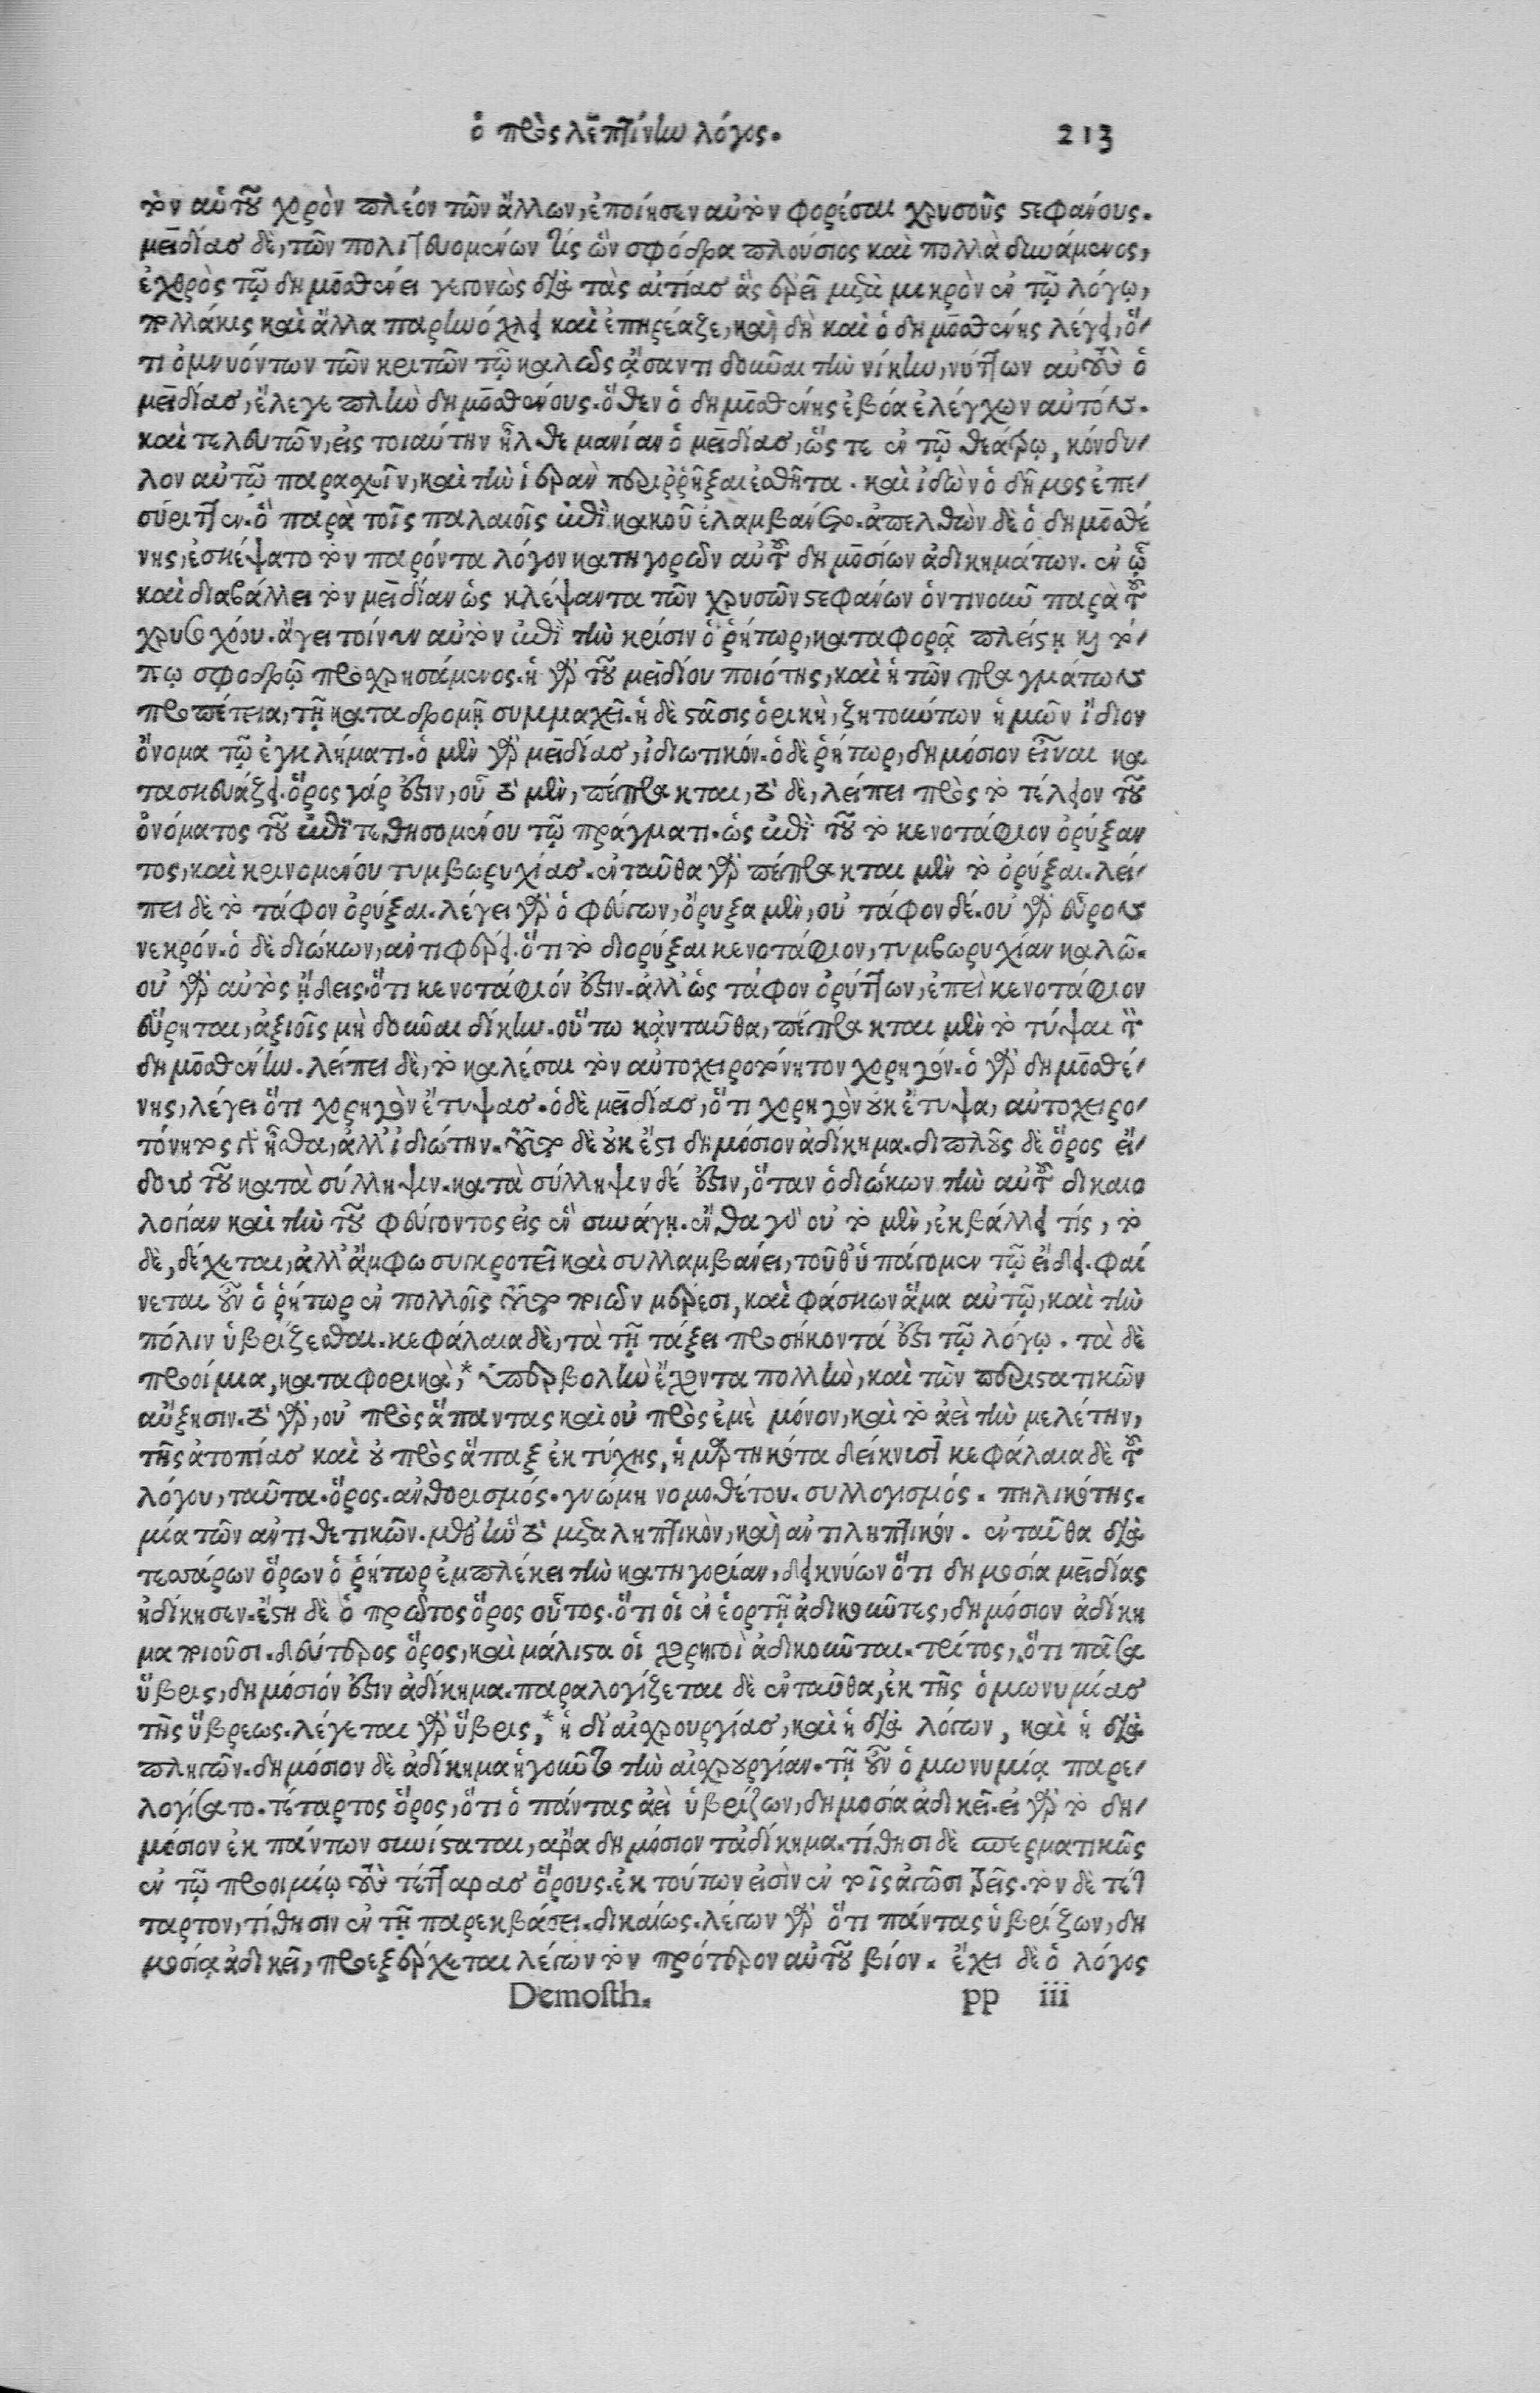 ὁ πρὸς λεπτίνην λόγος. 213
τὸν αὐτοῦ χορὸν πλέον τῶν ἄλλων, ἐποίησεν αὐτὸν φορέσαι χρυσοῦς στεφάνους.
μειδίας δὲ, τῶν πολιτευομένων τίς ὢν σφόδρα πλούσιος καὶ πολλὰ δυνάμενος,
ἐχθρὸς τῷ δημοσθένει γεγονὼς διὰ τὰς αἰτίας ἃς ἐρεῖ μετὰ μικρὸν ἐν τῷ λόγῳ,
πολλάκις καὶ ἄλλα παρηνόχλει καὶ ἐπηρέαζε, καὶ δὴ καὶ ὁ δημοσθένης λέγει, ὅ-
τι ὀμνυόντων τῶν κριτῶν τῷ καλῶς ᾄσαντι δοῦναι τὴν νίκην, νύττων αὐτοὺς ὁ
μειδίας, ἔλεγε πλὴν δημοσθένους. ὅθεν ὁ δημοσθένης ἐβόα ἐλέγχων αὐτόν.
καὶ τελευτῶν, εἰς τοιαύτην ἦλθε μανίαν ὁ μειδίας, ὥς τε ἐν τῷ θεάτρῳ, κόνδυ-
λον αὐτῷ παρασχεῖν, καὶ τὴν ἱερὰν περιῤῥῆξαι ἐσθῆτα. καὶ ἰδὼν ὁ δῆμος ἐπε-
σύριττεν. ὃ παρὰ τοῖς παλαιοῖς ἐπὶ κακοῦ ἐλαμβάνετο. ἀπελθὼν δὲ ὁ δημοσθέ
νης, ἐσκέψατο τὸν παρόντα λόγον κατηγορῶν αὐτοῦ δημοσίων ἀδικημάτων. ἐν ᾧ
καὶ διαβάλλει τὸν μειδίαν ὡς κλέψαντα τῶν χρυσῶν στεφάνων ὁντινοῦν παρὰ τοῦ
χρυσοχόου. ἄγει τοίνυν αὐτὸν ἐπὶ τὴν κρίσιν ὁ ῥήτωρ, καταφορᾷ πλείστῃ καὶ τό-
πῳ σφοδρῷ προχρησάμενος. ἡ γὰρ τοῦ μειδίου ποιότης, καὶ ἡ τῶν πραγμάτων
προπέτεια, τῇ καταδρομῇ συμμαχεῖ. ἡ δὲ στάσις ὁρικὴ, ζητούντων ἡμῶν ἴδιον
ὄνομα τῷ ἐγκλήματι. ὁ μὲν γὰρ μειδίας, ἰδιωτικόν. ὁ δὲ ῥήτωρ, δημόσιον εἶναι κα
τασκευάζει. ὅρος γάρ ἐστιν, οὗ τὸ μὲν, πέπρακται, τὸ δὲ, λείπει πρὸς τὸ τέλειον τοῦ
ὀνόματος τοῦ ἐπιτεθησομένου τῷ πράγματι. ὡς ἐπὶ τοῦ τὸ κενοτάφιον ὀρύξαν
τος, καὶ κρινομένου τυμβωρυχίας. ἐνταῦθα γὰρ πέπρακται μὲν τὸ ὀρύξαι. λεί-
πει δὲ τὸ τάφον ὀρύξαι. λέγει γὰρ ὁ φεύγων, ὄρυξα μὲν, οὐ τάφον δέ. οὐ γὰρ εὗρον
νεκρόν. ὁ δὲ διώκων, ἀντιφέρει. ὅτι τὸ διορύξαι κενοτάφιον, τυμβωρυχίαν καλῶ.
οὐ γὰρ αὐτὸς ᾔδεις. ὅτι κενοτάφιόν ἐστιν. ἀλλ' ὡς τάφον ὀρύττων, ἐπεὶ κενοτάφιον
εὕρηται, ἀξιοῖς μὴ δοῦναι δίκην. οὕτω κἀνταῦθα, πέπρακται μὲν τὸ τύψαι τὸν
δημοσθένην. λείπει δὲ, τὸ καλέσαι τὸν αὐτοχειροτόνητον χορηγόν. ὁ γὰρ δημοσθέ-
νης, λέγει ὅτι χορηγὸν ἔτυψας. ὁ δὲ μειδίας, ὅτι χορηγὸν οὐκ ἔτυψα, αὐτοχειρο-
τόνητος γὰρ ἦσθα, ἀλλ' ἰδιώτην. τοῦτο δὲ οὐκ ἔστι δημόσιον ἀδίκημα. διπλοῦς δὲ ὅρος εἴ-
δους τοῦ κατὰ σύλληψιν. κατὰ σύλληψιν δέ ἐστιν, ὅταν ὁ διώκων τὴν αὐτοῦ δικαιο
λογίαν καὶ τὴν τοῦ φεύγοντος εἰς ἓν συνάγῃ. ἔνθα γὰρ οὐ τὸ μὲν, ἐκβάλλει τίς, τὸ
δὲ, δέχεται, ἀλλ' ἄμφω συγκροτεῖ καὶ συλλαμβάνει, τοῦθ' ὑπάγομεν τῷ εἴδει. φαί
νεται οὖν ὁ ῥήτωρ ἐν πολλοῖς τοῦτο ποιῶν μέρεσι, καὶ φάσκων ἅμα αὐτῷ, καὶ τὴν
πόλιν ὑβρίζεσθαι. κεφάλαια δὲ, τὰ τῇ τάξει προσήκοντά ἐστι τῷ λόγῳ. τὰ δὲ
προοίμια, καταφορικὰ,* ὑπερβολὴν ἔχοντα πολλὴν, καὶ τῶν περιστατικῶν
αὔξησιν. τὸ γὰρ, οὐ πρὸς ἅπαντας καὶ οὐ πρὸς ἐμὲ μόνον, καὶ τὸ ἀεὶ τὴν μελέτην,
τῆς ἀτοπίας καὶ οὐ πρὸς ἅπαξ ἐκ τύχης, ἡμαρτηκότα δείκνυσι κεφάλαια δὲ τοῦ
λόγου, ταῦτα. ὅρος. ἀνθορισμός. γνώμη νομοθέτου. συλλογισμός. πηλικότης.
μία τῶν ἀντιθετικῶν. μεθ' ἣν τὸ μεταληπτικὸν, καὶ ἀντιληπτικόν. ἐνταῦθα διὰ
τεσσάρων ὅρων ὁ ῥήτωρ ἐμπλέκει τὴν κατηγορίαν, δεικνύων ὅτι δημοσίᾳ μειδίας
ἠδίκησεν. ἔστι δὲ ὁ πρῶτος ὅρος οὗτος. ὅτι οἱ ἐν ἑορτῇ ἀδικοῦντες, δημόσιον ἀδίκη
μα ποιοῦσι. δεύτερος ὅρος, καὶ μάλιστα οἱ χορηγοὶ ἀδικοῦνται. τρίτος, ὅτι πᾶσα
ὕβρις, δημόσιόν ἐστιν ἀδίκημα. παραλογίζεται δὲ ἐνταῦθα, ἐκ τῆς ὁμωνυμίας
τῆς ὕβρεως. λέγεται γὰρ ὕβρις,* ἡ δι' αἰσχρουργίας, καὶ ἡ διὰ λόγων, καὶ ἡ διὰ
πληγῶν. δημόσιον δὲ ἀδίκημα ἡγοῦντο τὴν αἰσχρουργίαν. τῇ οὖν ὁμωνυμίᾳ παρε-
λογίσατο. τέταρτος ὅρος, ὅτι ὁ πάντας ἀεὶ ὑβρίζων, δημοσίᾳ ἀδικεῖ. εἰ γὰρ τὸ δη-
μόσιον ἐκ πάντων συνίσταται, ἄρα δημόσιον τἀδίκημα. τίθησι δὲ σπερματικῶς
ἐν τῷ προοιμίῳ τοὺς τέτταρας ὅρους. ἐκ τούτων εἰσὶν ἐν τοῖς ἀγῶσι τρεῖς. τὸν δὲ τέ-
ταρτον, τίθησιν ἐν τῇ παρεκβάσει. δικαίως. λέγων γὰρ ὅτι πάντας ὑβρίζων, δη
μοσίᾳ ἀδικεῖ, προεξέρχεται λέγων τὸν πρότερον αὐτοῦ βίον. ἔχει δὲ ὁ λόγος
Demosth. pp iii